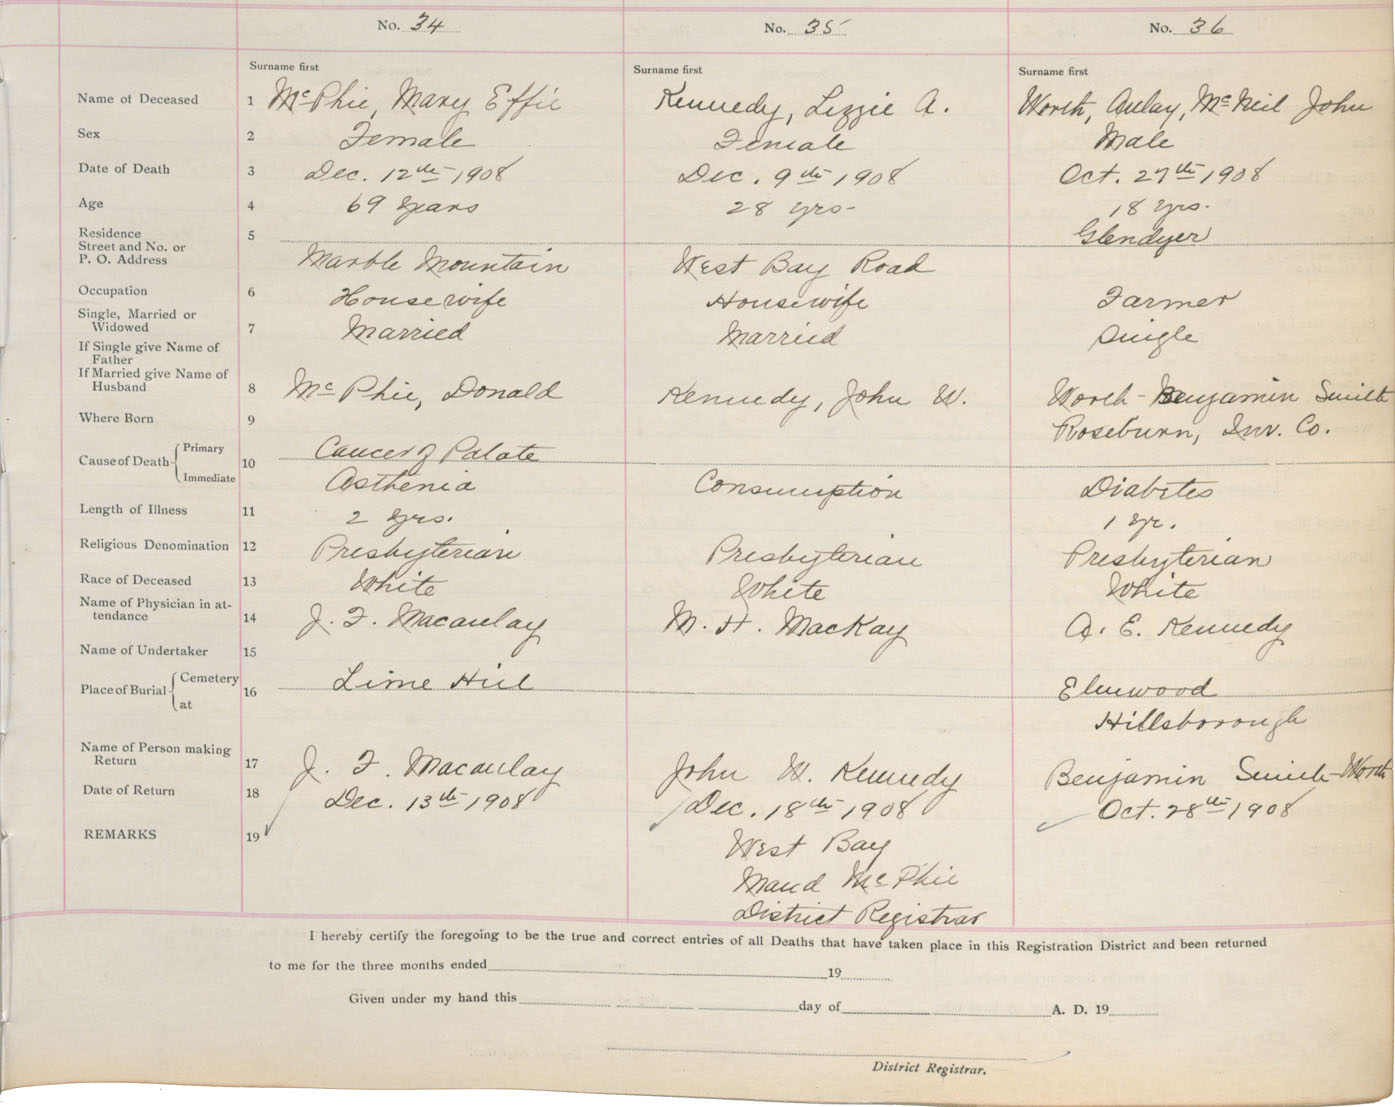 No. 34 No. 35 No. 36
Surname first Surname first Surname first
Name of Deceased 1 McPhie, Mary Effie Kennedy, Lizzie A. Worth, Aulay, McNeil John
Sex 2 Female Female Male
Date of Death 3 Dec. 12th 1908 Dec. 9th 1908 Oct. 27th 1908
Age 4 69 years 28 yrs- 18 yrs.
Residence 5 Glendyer
Street and No. or
P. O. Address Marble Mountain West Bay Road
Occupation 6 Housewife Housewife Farmer
Single, Married or
Widowed 7 Married Married Single
If Single give Name of
Father
If Married give Name of
Husband 8 McPhie, Donald Kennedy, John W. Worth-Benjamin Smith
Where Born 9 Roseburn, Inv. Co.
Cause of Death Primary 10 Cancer of Palate
Immediate Asthenia Consumption Diabetes
Length of Illness 11 2 yrs. 1 yr.
Religious Denomination 12 Presbyterian Presbyterian Presbyterian
Race of Deceased 13 White White White
Name of Physician in at-
tendance 14 J. F. Macaulay M. H. MacKay A. E. Kennedy
Name of Undertaker 15
Place of Burial Cemetery 16 Lime Hill Elmwood
at Hillsborough
Name of Person making
Return 17 J. F. Macaulay John W. Kennedy Benjamin Smith-Worth
Date of Return 18 Dec. 13th 1908 Dec. 18th 1908 Oct. 28th 1908
REMARKS 19 West Bay
Maud McPhie
District Registrar
I hereby certify the foregoing to be the true and correct entries of all Deaths that have taken place in this Registration District and been returned
to me for the three months ended 19
Given under my hand this day of A. D. 19
District Registrar.